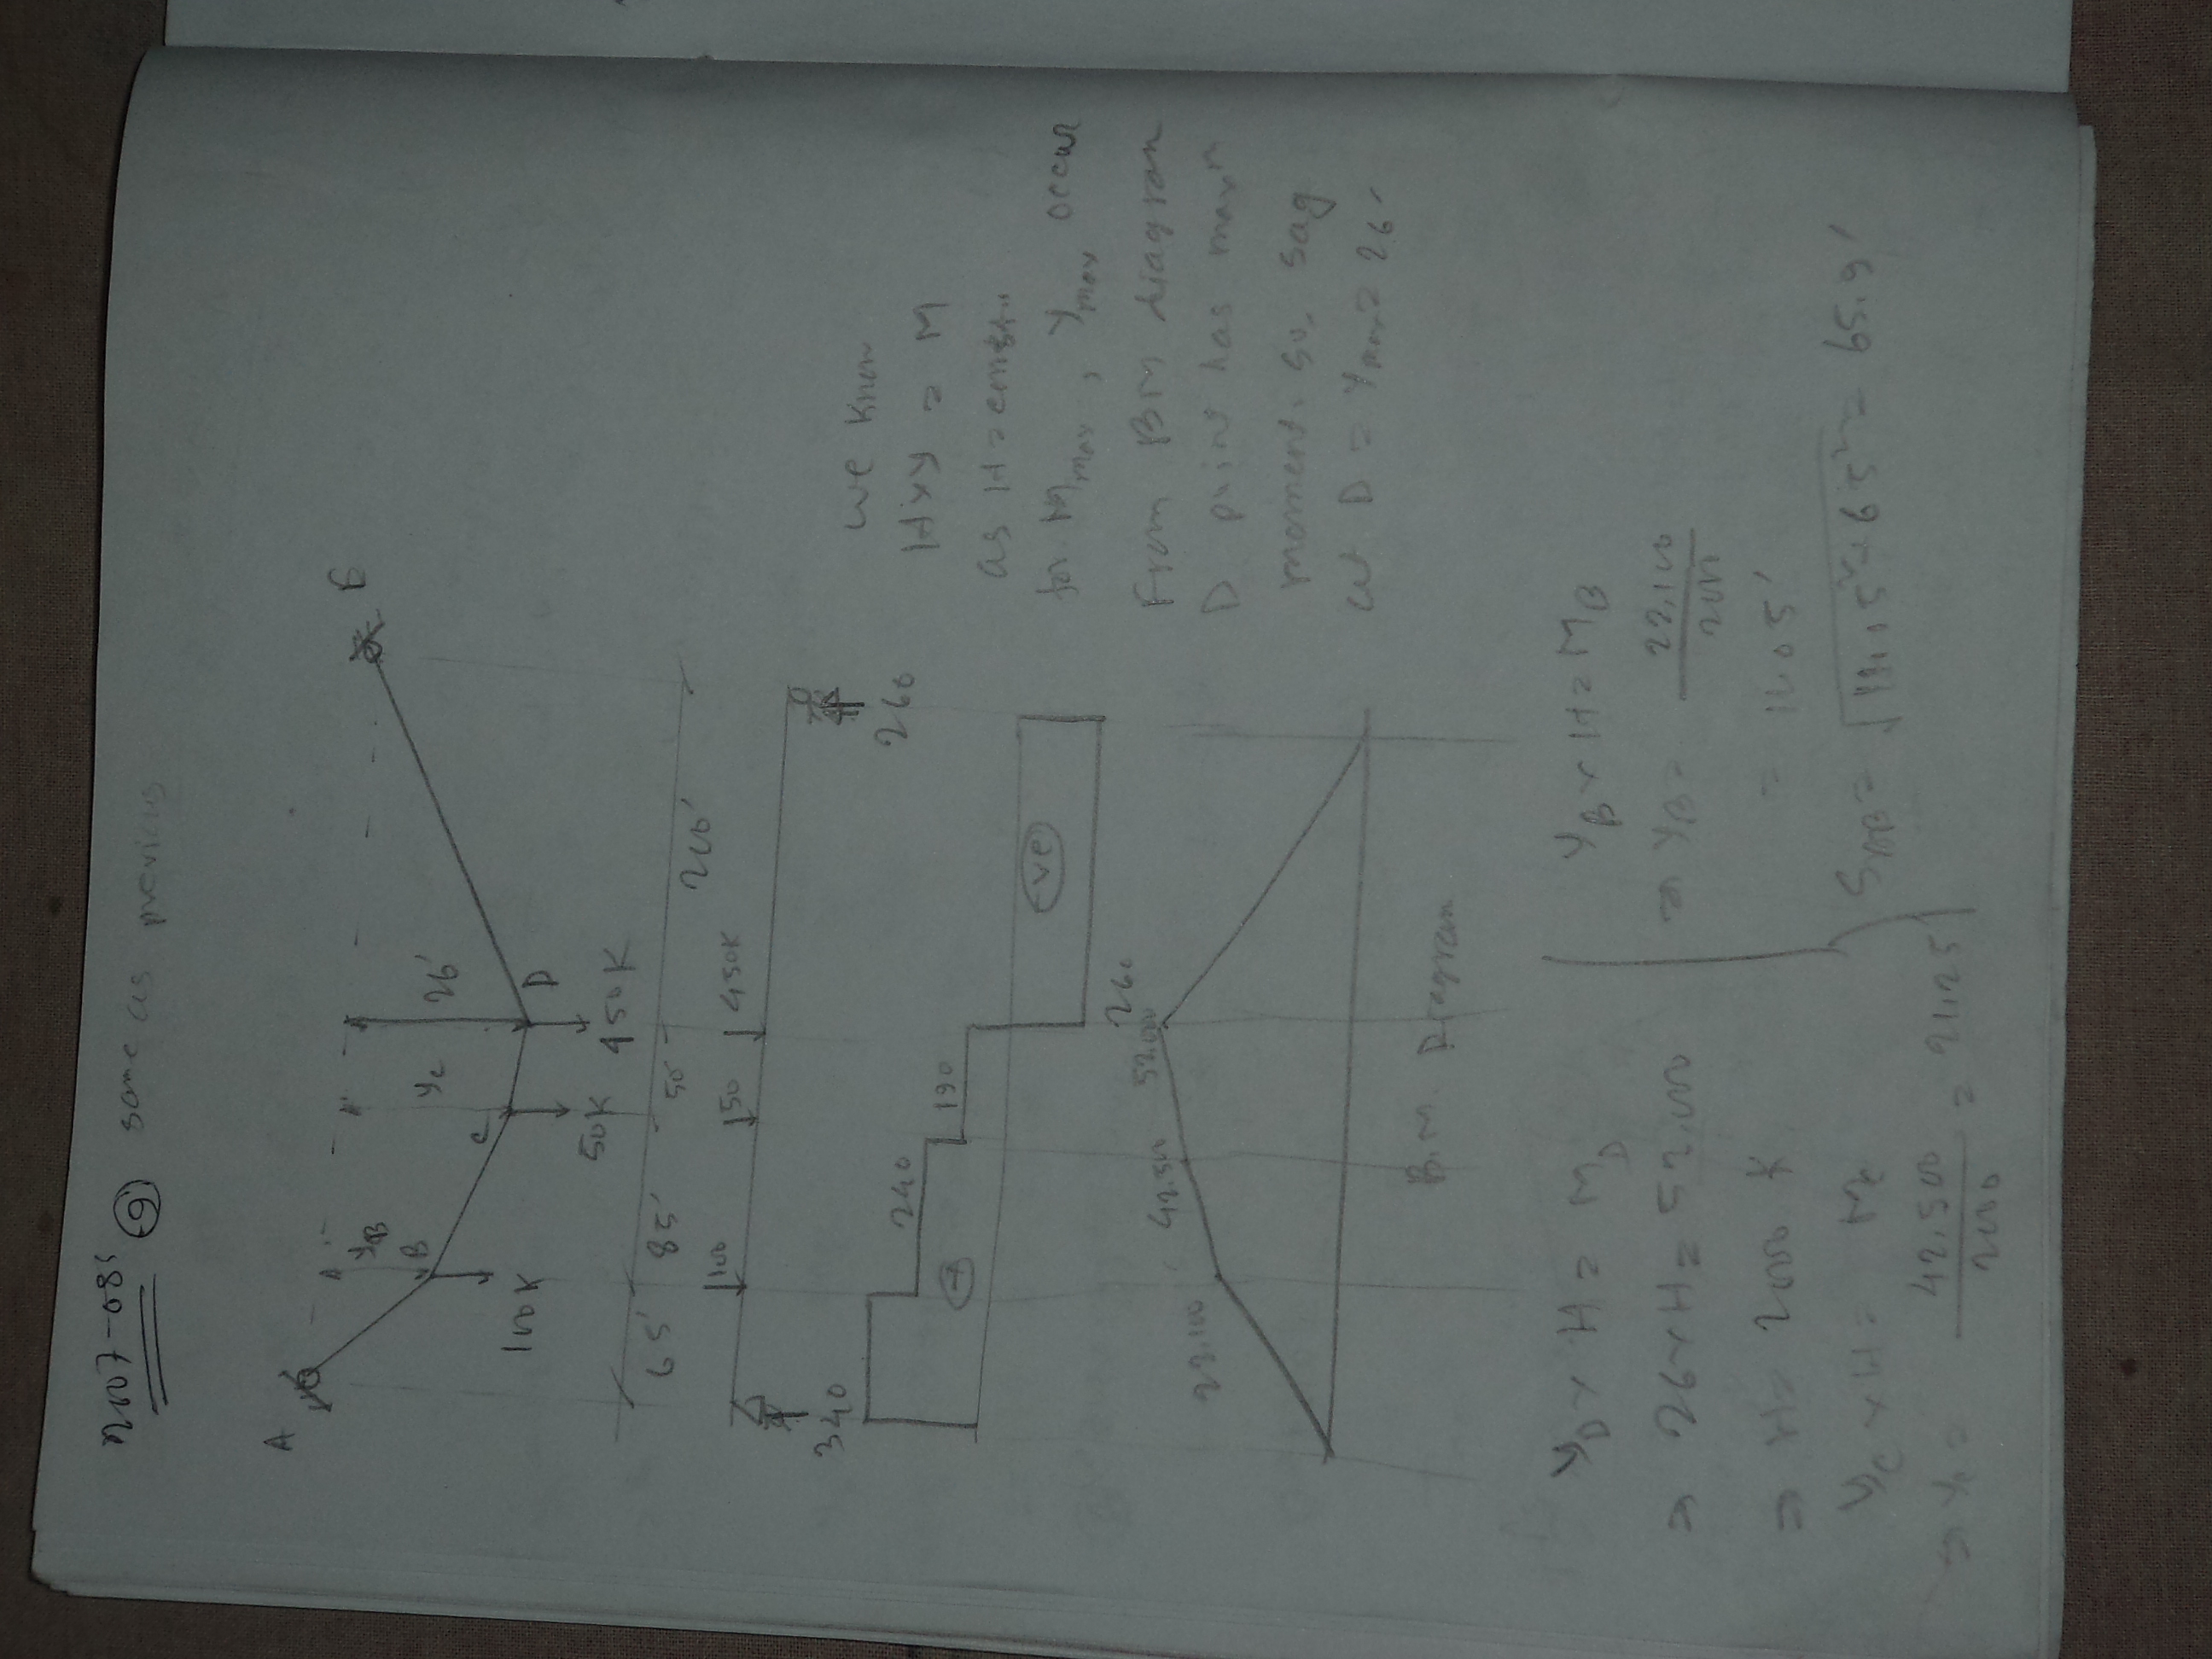 2007-08' (9) same as previous
A
E
yB
B
yc
C
26'
D
100K
50K
450K
65'
85'
50'
200'
100
50
450K
340
260
240
190
+
-ve
260
22,100
42,500
52,000
B.M. Diagram
we know
H×y = M
as H = constn
for Mmax, ymax occur
From BM diagram
D point has maxm
moment. so, sag
at D = ymax = 26'
yD × H = MD
⇒ 26 × H = 52,000
⇒ H = 2000 K
yc × H = Mc
⇒ yc = 42,500 / 2000 = 21.25'
yB × H = MB
⇒ yB = 22,100 / 2000
= 11.05'
SAB = √11.05²+65² = 65.9'